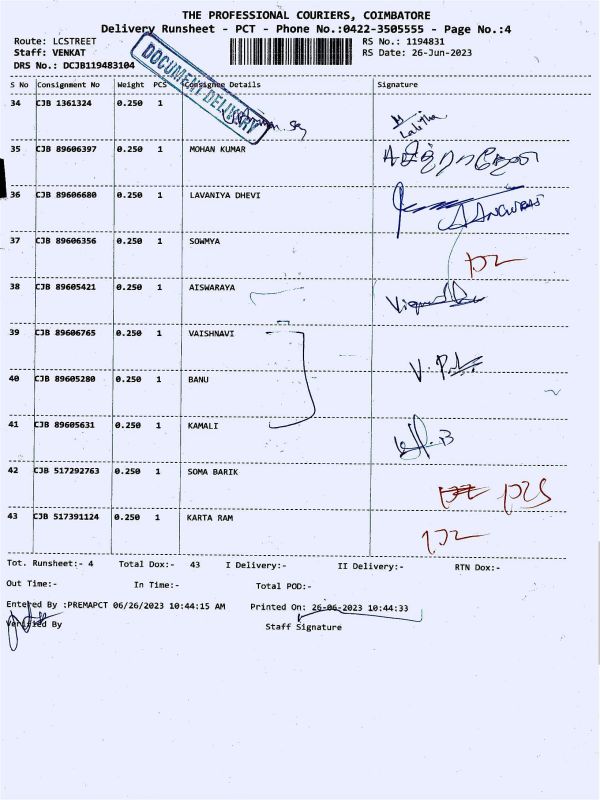 THE PROFESSIONAL COURIERS, COIMBATORE
Delivery Runsheet - PCT - Phone No.:0422-3505555 - Page No.:4
Route: LCSTREET RS No.: 1194831
Staff: VENKAT RS Date: 26-Jun-2023
DRS No.: DCJB119483104
DOCUMENT DELIVERY
S No Consignment No Weight PCS Consignee Details Signature
34 CJB 1361324 0.250 1
35 CJB 89606397 0.250 1 MOHAN KUMAR
36 CJB 89606680 0.250 1 LAVANIYA DHEVI
37 CJB 89606356 0.250 1 SOWMYA
38 CJB 89605421 0.250 1 AISWARAYA
39 CJB 89606765 0.250 1 VAISHNAVI
40 CJB 89605280 0.250 1 BANU
41 CJB 89605631 0.250 1 KAMALI
42 CJB 517292763 0.250 1 SOMA BARIK
43 CJB 517391124 0.250 1 KARTA RAM
Tot. Runsheet:- 4 Total Dox:- 43 I Delivery:- II Delivery:- RTN Dox:-
Out Time:- In Time:- Total POD:-
Entered By :PREMAPCT 06/26/2023 10:44:15 AM Printed On: 26-06-2023 10:44:33
Verified By Staff Signature